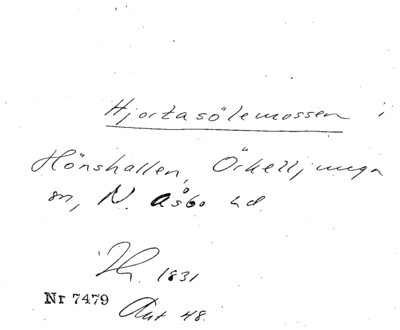 Hjortasölemossen i
Hönshallen, Örkelljunga
sn, N. Åsbo hd.
Th. 1831
Nr 7479
Akt 48.